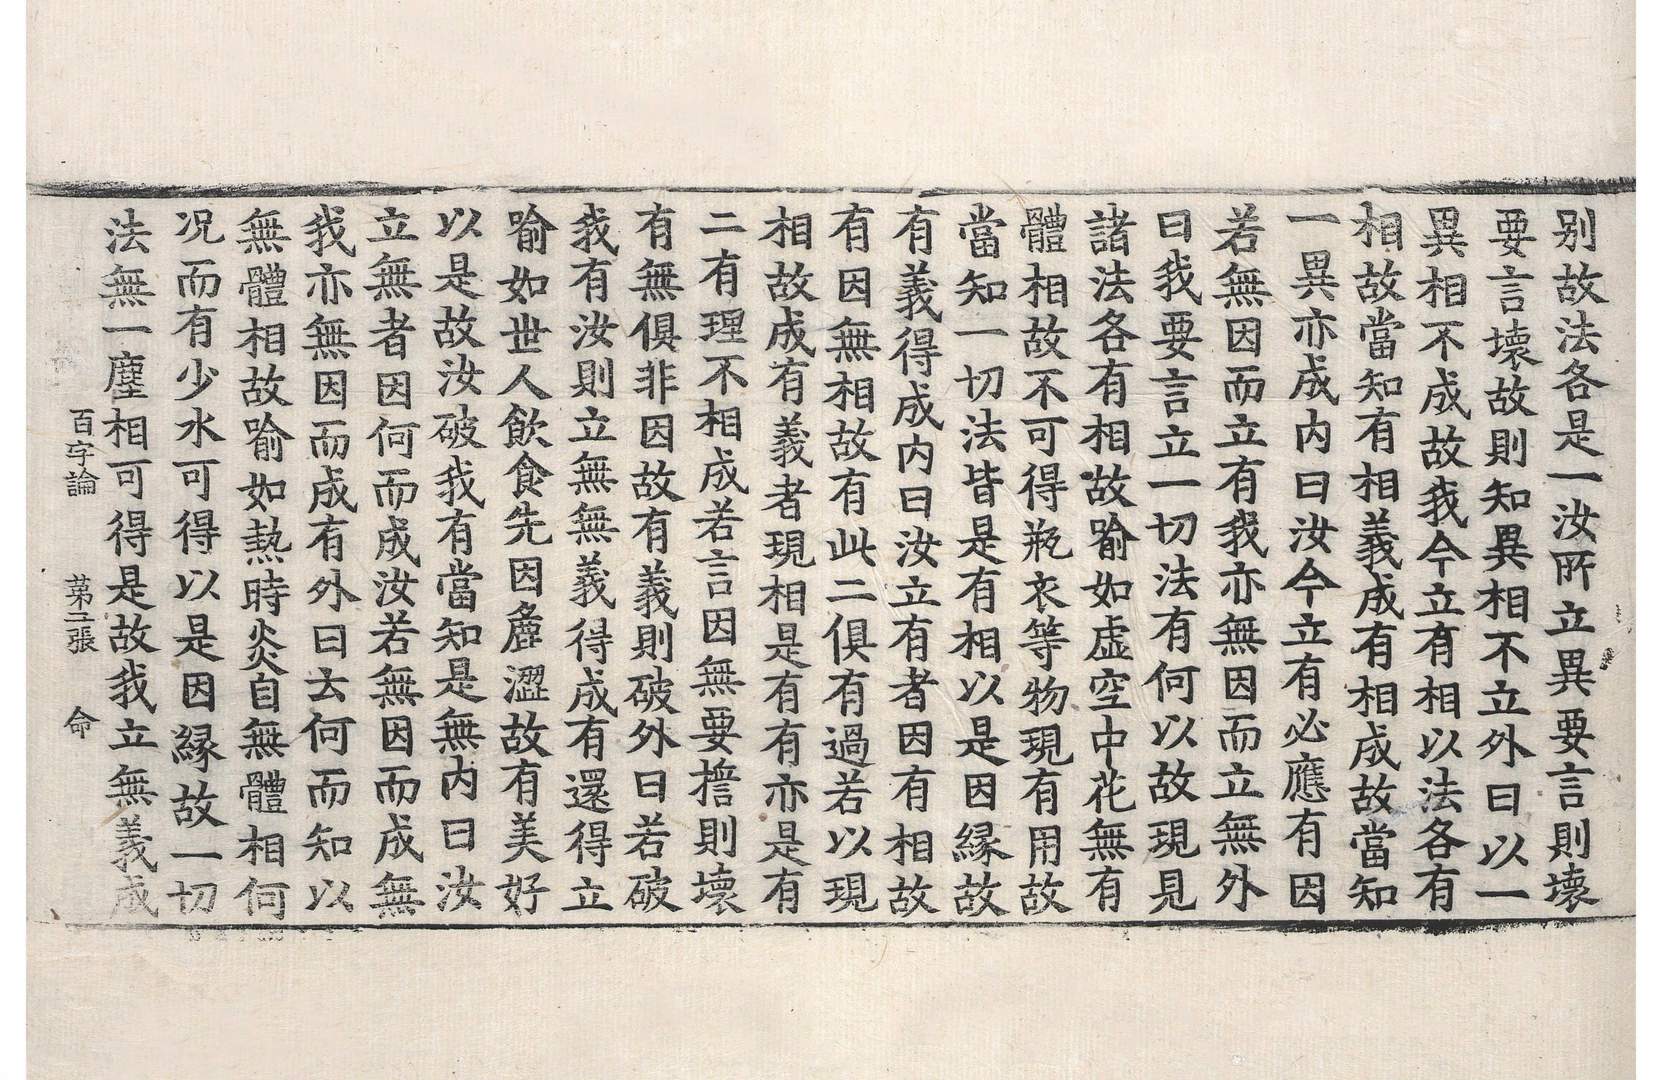 别故法各是一汝所立異要言則壞
要言壞故則知異相不立外曰以一
異相不成故我今立有相以法各有
相故當知有相義成有相成故當知
一異亦成内曰汝今立有必應有因
若無因而立有我亦無因而立無外
曰我要言立一切法有何以故現見
諸法各有相故喻如虚空中花無有
體相故不可得瓶衣等物現有用故
當知一切法皆是有相以是因縁故
有義得成内曰汝立有者因有相故
有因無相故有此二俱有過若以現
相故成有義者現相是有有亦是有
二有理不相成若言因無要㨪則壞
有無俱非因故有義則破外曰若破
我有汝則立無無義得成有還得立
喻如世人飲食先因麁澀故有美好
以是故汝破我有當知是無内曰汝
立無者因何而成汝若無因而成無
我亦無因而成有外曰云何而知以
無體相故喻如熱時炎自無體相何
况而有少水可得以是因縁故一切
法無一塵相可得是故我立無義成
百字論 苐二張 命